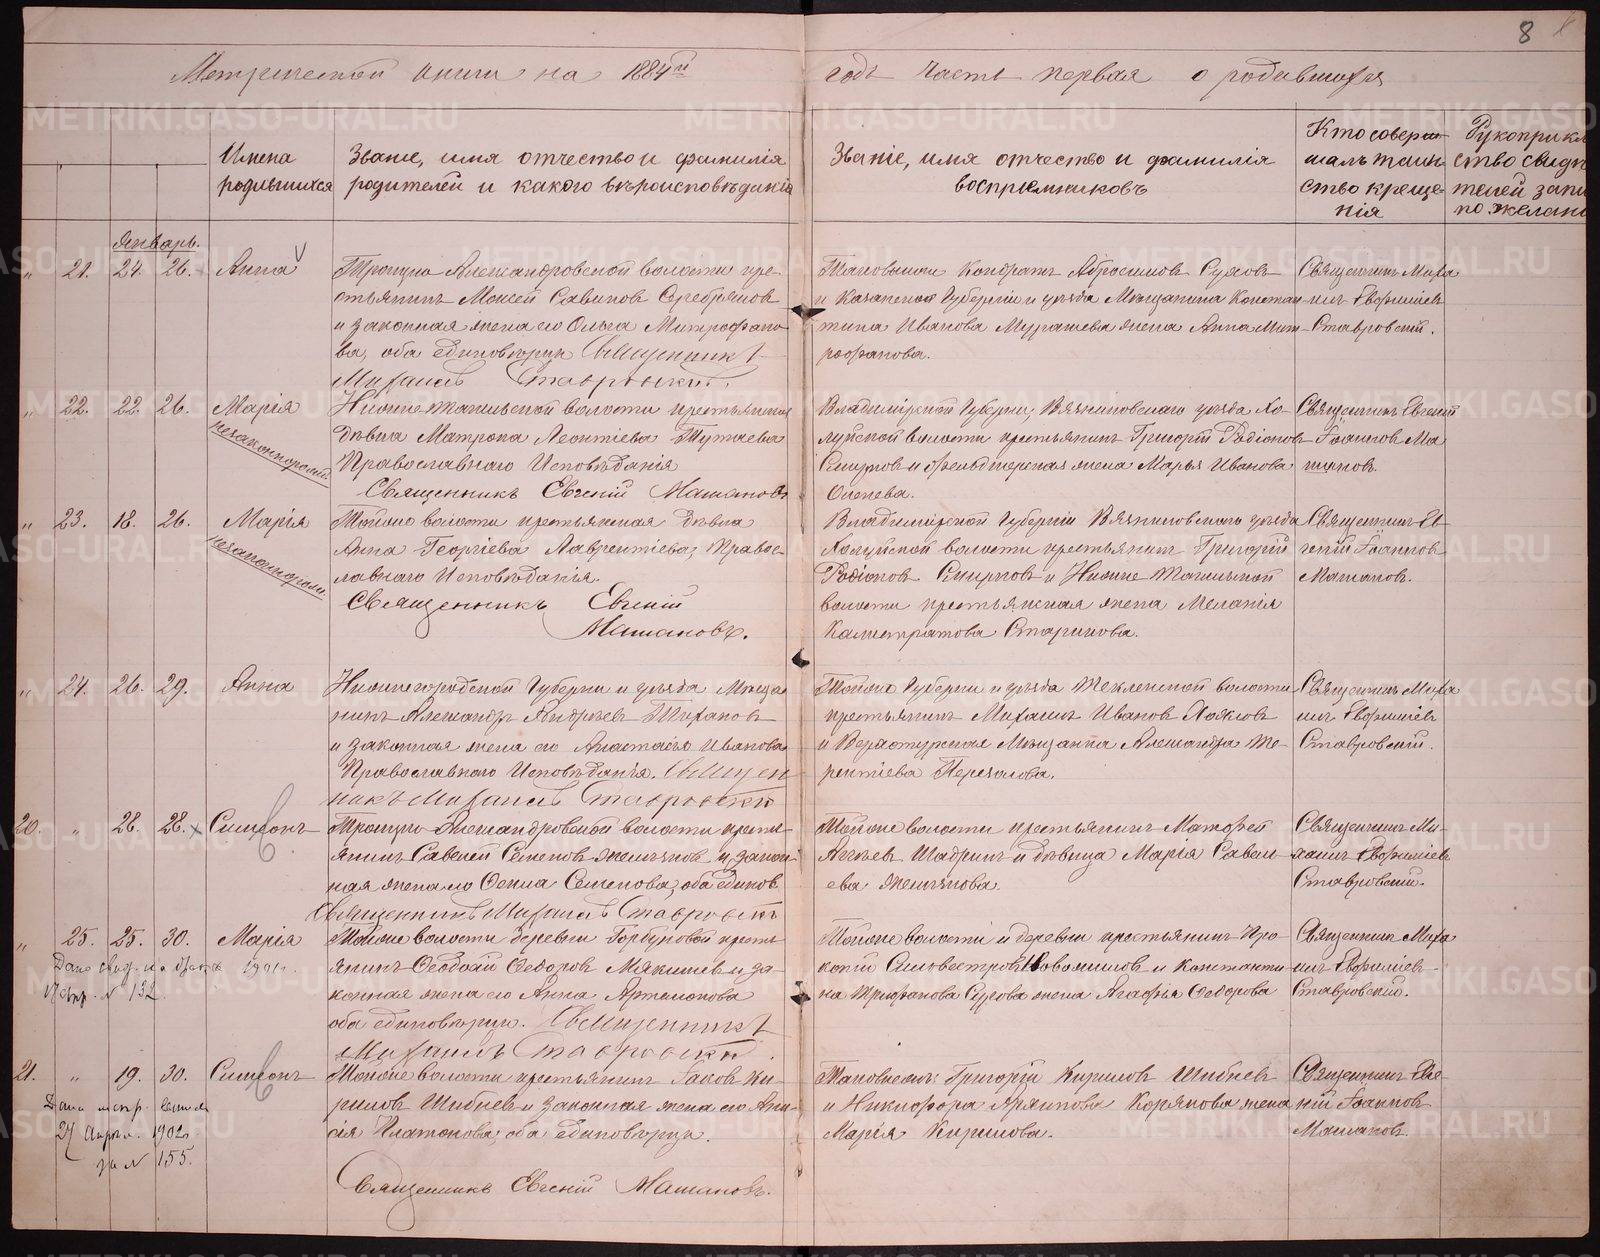 8
Метрической книги на 1884й годъ часть первая о родившихся
Имена родившихся
Званіе, имя отчество и фамилія
родителей и какого вѣроисповѣданія
Званіе, имя отчество и фамилія
воспріемниковъ
Кто совер-
шалъ таин-
ство креще-
нія
Рукоприкл
ство свидѣ
телей запи
по желані
Январь.
" 21. 24. 26. Анна
Троицко Александровской волости кре-
стьянинъ Моисей Савиновъ Серебряковъ
и законная жена его Ольга Митрофано-
ва, оба единовѣрцы Священникъ
Михаилъ Ставровскій.
Таковыи Кондратъ Абросимовъ Суховъ
и Казанской Губерніи и уѣзда Мѣщанина Констан-
тина Иванова Мурашева жена Анна Мит-
рофанова.
Священникъ Миха
илъ Евфиміевъ
Ставровскій.
" 22. 22. 26. Марія
незаконнорожд.
Нижне Тагильской волости крестьянская
дѣвка Матрона Леонтіева
Православнаго Исповѣданія
Священникъ Евгеній Машановъ
Владимірской Губерніи, Вязниковскаго уѣзда Хо-
луйской волости крестьянинъ Григорій Родіоновъ
Смирновъ и фельдшерская жена Марья Иванова
Священникъ Евгеній
Іоанновъ Ма
шановъ.
" 23. 18. 26. Марія
незаконнорожд.
Тойже волости крестьянская дѣвка
Анна Георгіева Лаврентіева, Право-
славнаго Исповѣданія.
Священникъ Евгеній
Машановъ.
Владимірской Губерніи Вязниковскаго уѣзда
Холуйской волости крестьянинъ Григорій
Родіоновъ Смирновъ и Нижне Тагильской
волости крестьянская жена Меланія
Калистратова Старикова.
Священникъ Ев
геній Іоанновъ
Машановъ.
" 24. 26. 29. Анна
Нижегородской Губерніи и уѣзда Мѣща-
нинъ Александръ Андреевъ
и законная жена его Анастасія Иванова
Православнаго Исповѣданія. Священ
никъ Михаилъ Ставровскій
Тойже Губерніи и уѣзда волости
крестьянинъ Михаилъ Ивановъ
и Верхотурская Мѣщанка Александра Те-
рентіева
Священникъ Миха
илъ Евфиміевъ
Ставровскій.
20. " 28. 28. Симеонъ
Троицко Александровской волости кресть-
янинъ Савелій Семеновъ и закон-
ная жена его Семенова, оба единов
Священникъ Михаилъ Ставровскій
Тойже волости крестьянинъ Матфей
Шадринъ и дѣвица Марія Савель-
ева
Священникъ Ми-
хаилъ Евфиміевъ
Ставровскій.
" 25. 25. 30. Марія
Дано свид. на бракъ 1901г.
№ 132
Тойже волости деревни Горбуновой кресть-
янинъ Ѳедоровъ Мякишевъ и за-
конная жена его Анна Артамонова
оба единовѣрцы. Священникъ
Михаилъ Ставровскій.
Тойже волости и деревни крестьянинъ Про-
копій Сильвестровъ Новожиловъ и Константи-
на Трифонова Сухова жена Агафья Ѳедорова
Священникъ Миха
илъ Евфиміевъ
Ставровскій.
21. " 19. 30. Симеонъ
Дана
27 Апрѣл. 1902г.
за № 155.
Тойже волости крестьянинъ Іаковъ Ки-
риловъ Шибневъ и законная жена его Ани-
сія Платонова, оба единовѣрцы.
Священникъ Евгеній Машановъ.
Таковыеже: Григорій Кириловъ Шибневъ
и Никифора Корякова жена
Марія Кирилова.
Священникъ Евге-
ній Іоанновъ
Машановъ.
METRIKI.GASO-URAL.RU